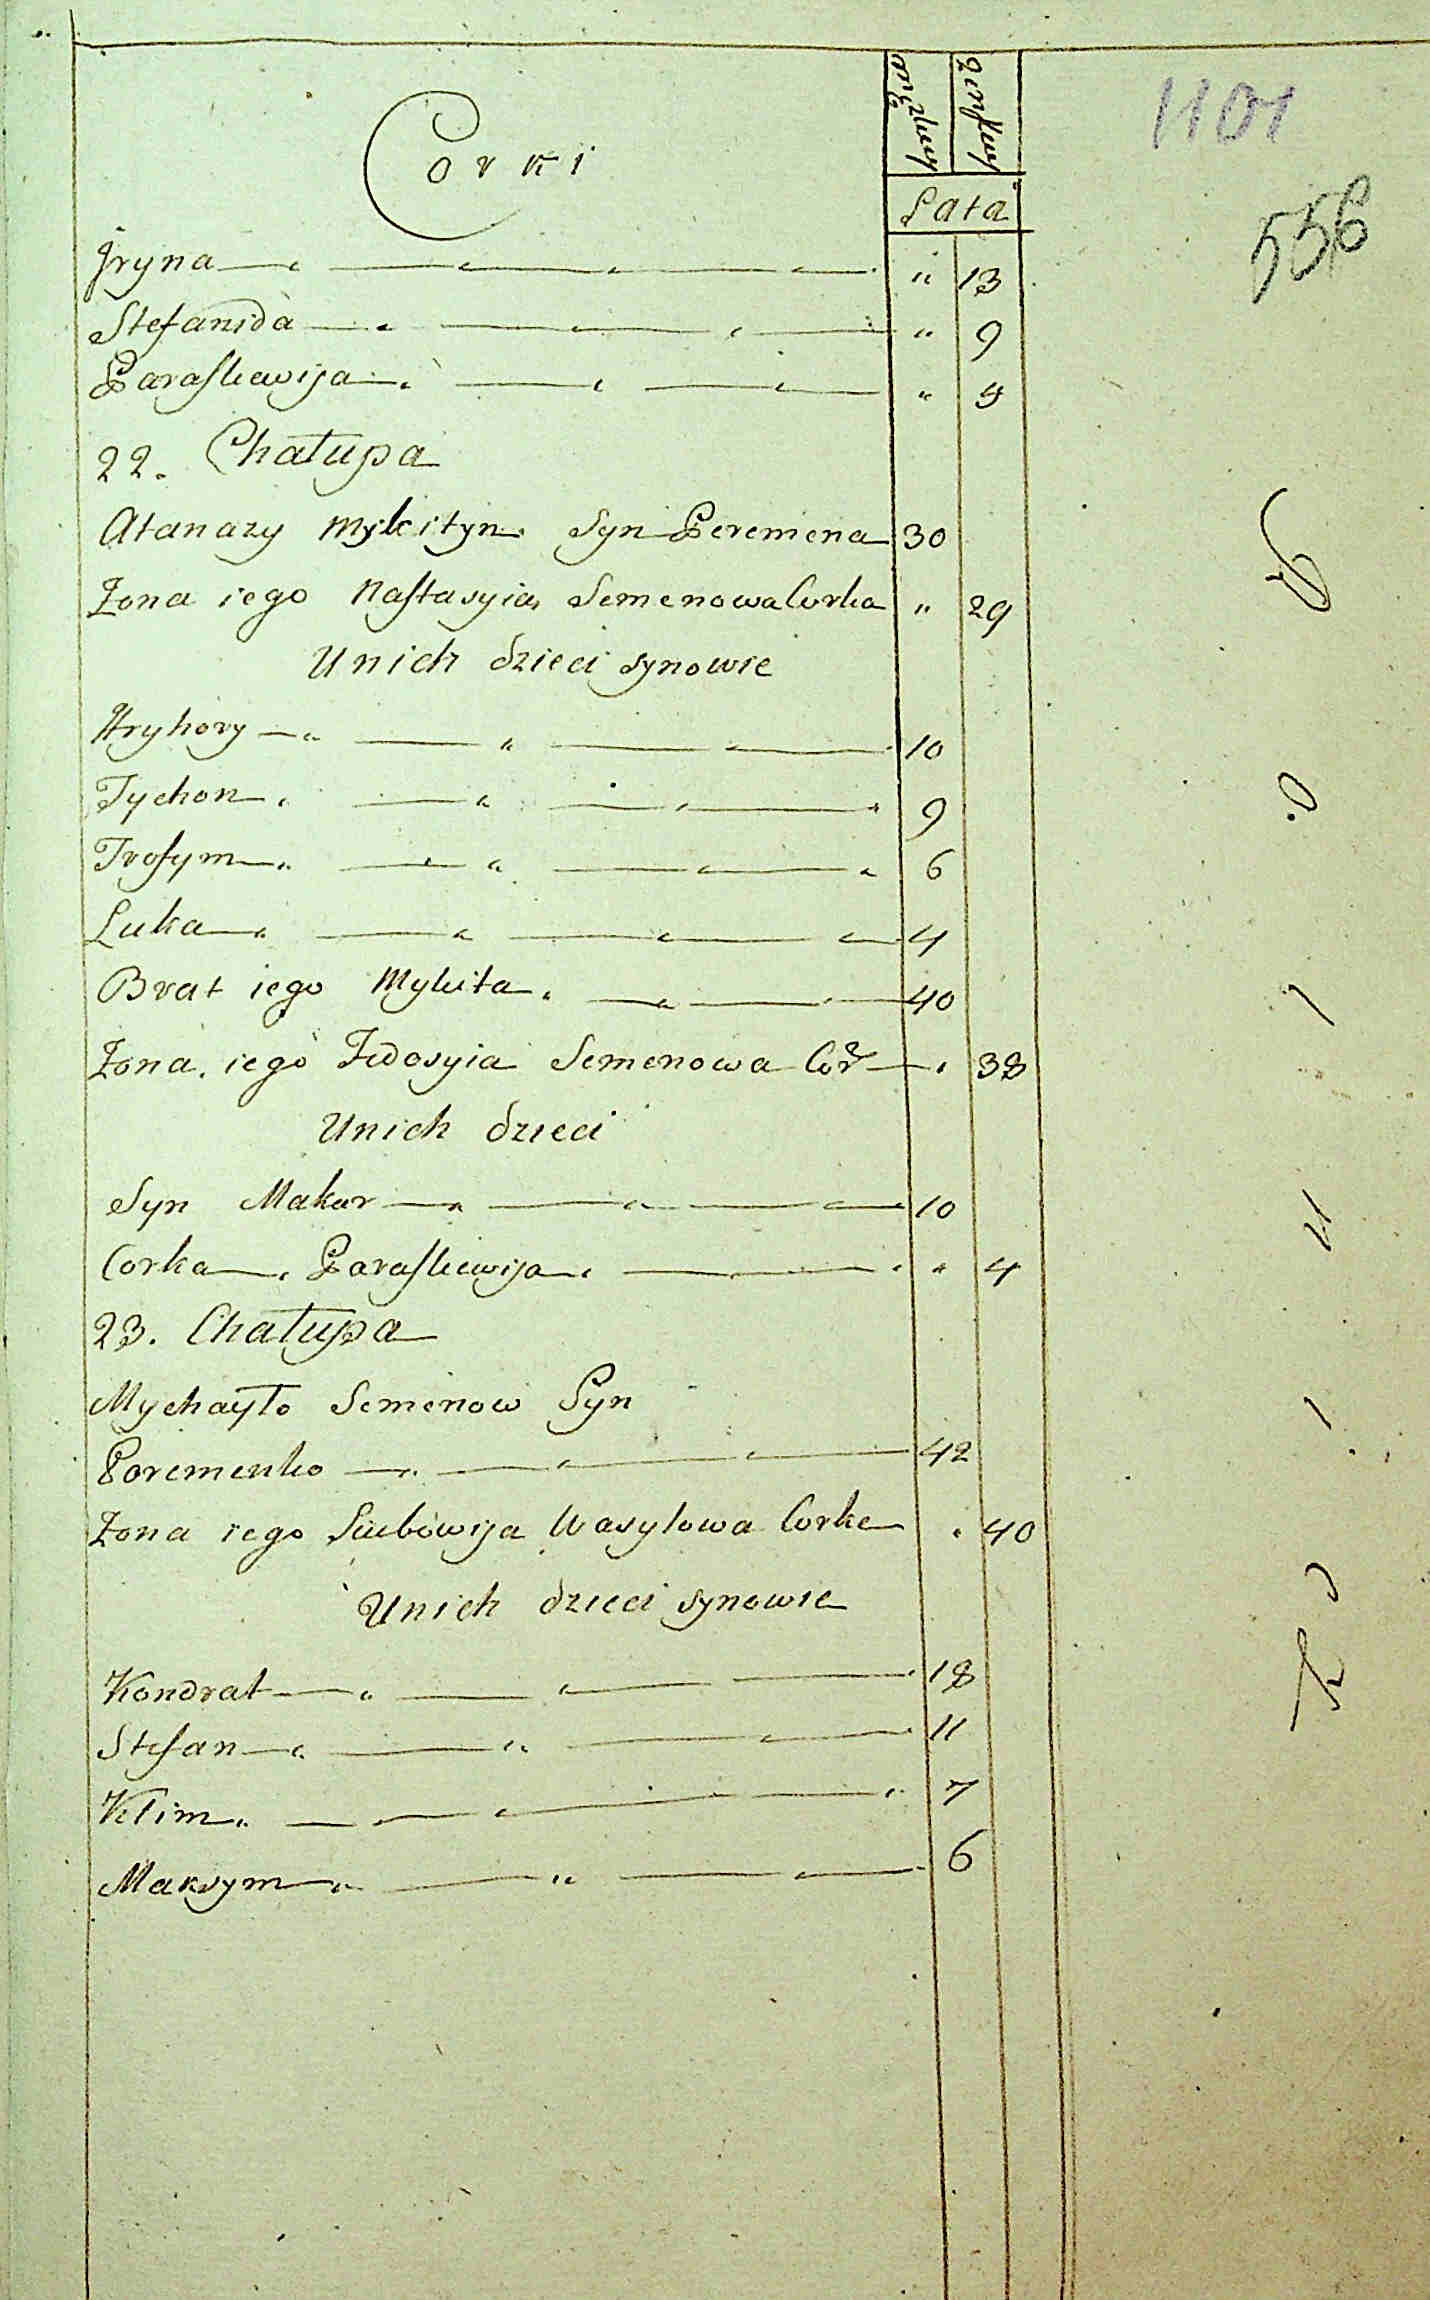 męzkiey żenskiey
1101
Corki
Lata
556
Jryna " 13
Stefanida " 9
Paraskewija " 4
22. Chałupa
Atanazy Mykityn Syn Peremena 30
Żona iego Nastasyia Semenowa Corka " 29
U nich dzieci synowie
Hryhory 10
Tychon 9
Trofym 6
Luka 4
Brat iego Mykita 40
Żona iego Fedosyia Semenowa Cor 38
U nich dzieci
Syn Makar 10
Corka Paraskewija " 4
23. Chałupa
Mychayło Semenow Syn
Poremenko 42
Żona iego Liubowija Wasylowa Corka 40
U nich dzieci synowie
Kondrat 18
Stefan 11
Klim 7
Maksym 6